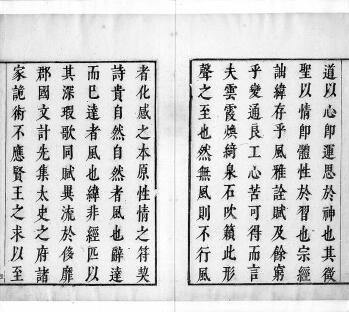 道以心卽運恩於神也其徴
聖以情卽體性於習也宗經
詘緯存乎風雅詮賦及餘窮
乎變通良工心苦可得而言
夫雲霞煥綺泉石吹籟此形
聲之至也然無風則不行風
者化感之本原性情之符契
詩貴自然自然者風也辭達
而已達者風也緯非經匹以
其深瑕歌同賦異流於侈靡
郡國文計先集太史之府諸
家詭術不應賢王之求以至